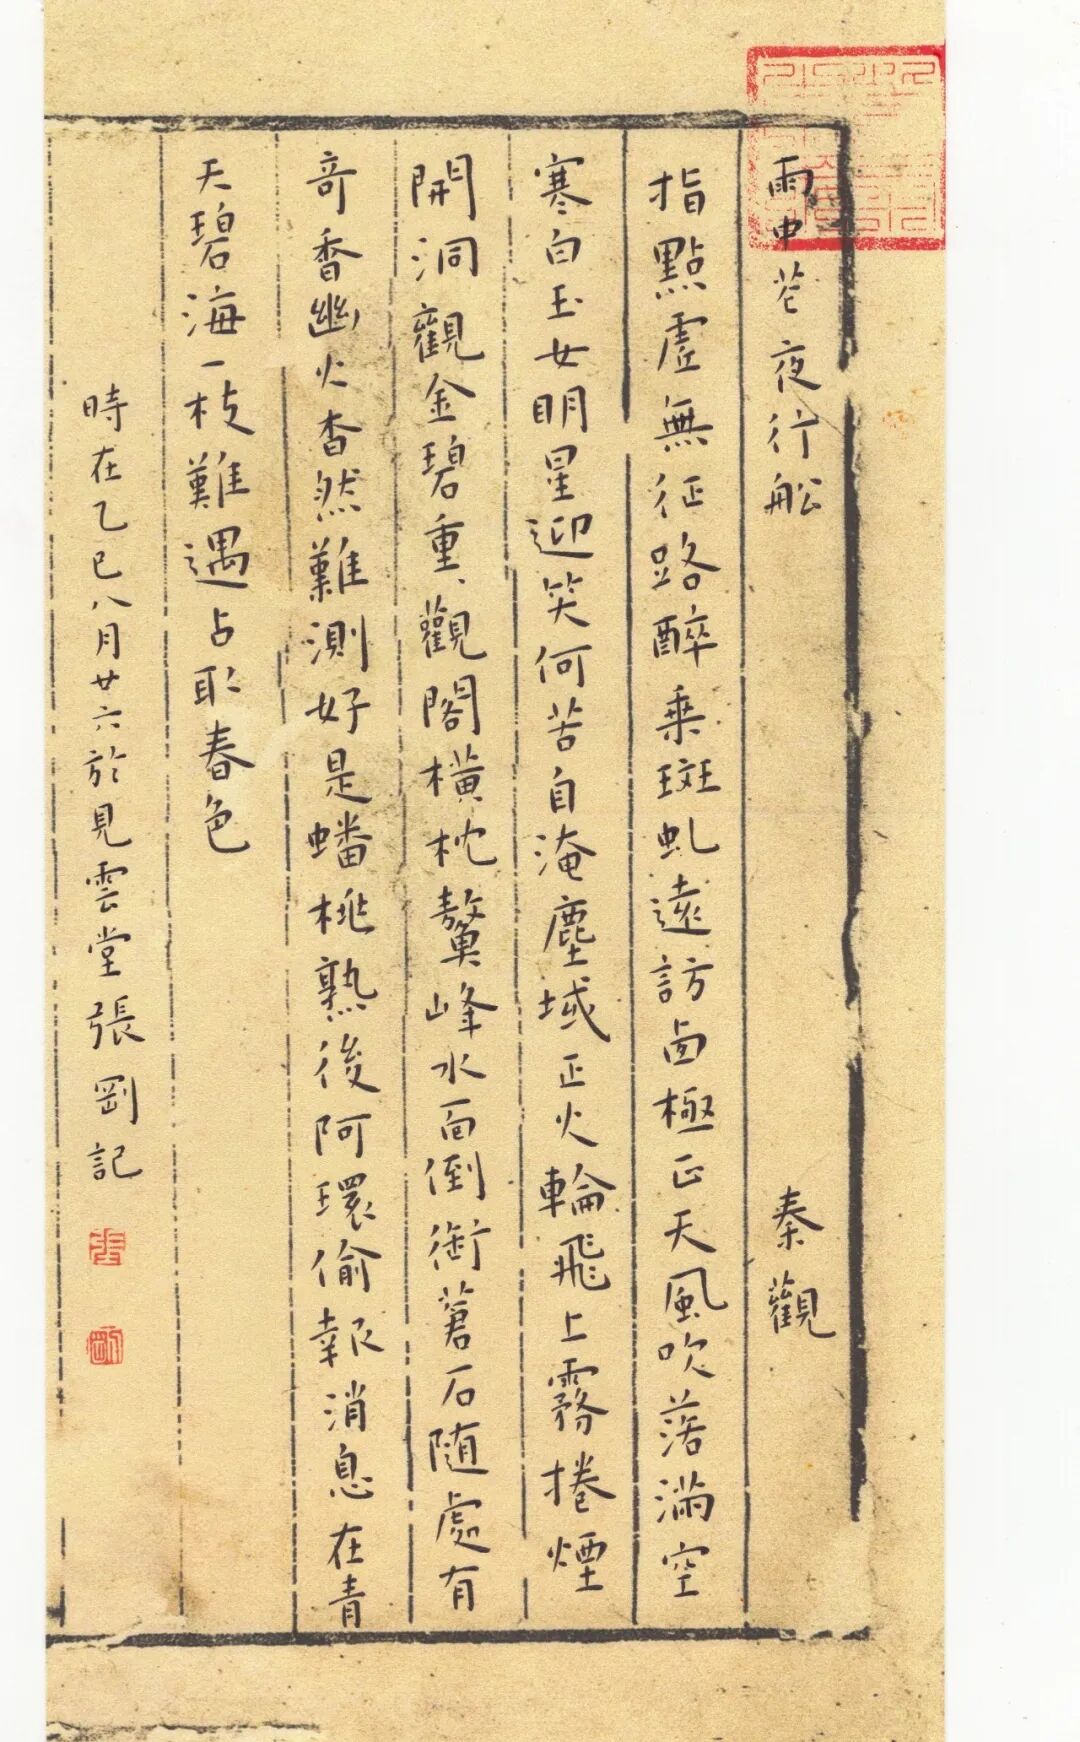 雨中花 夜行舩 秦觀
指點虛無征路醉乗斑虬遠訪西極正天風吹落滿空
寒白玉女明星迎笑何苦自淹塵域正火輪飛上霧捲煙
開洞觀金碧重、觀閣橫枕鰲峰水面倒銜蒼石随處有
奇香幽火杳然難測好是蟠桃熟後阿環偷報消息在青
天碧海一枝難遇占取春色
時在乙巳八月廿六於見雲堂張剛記
張
剛